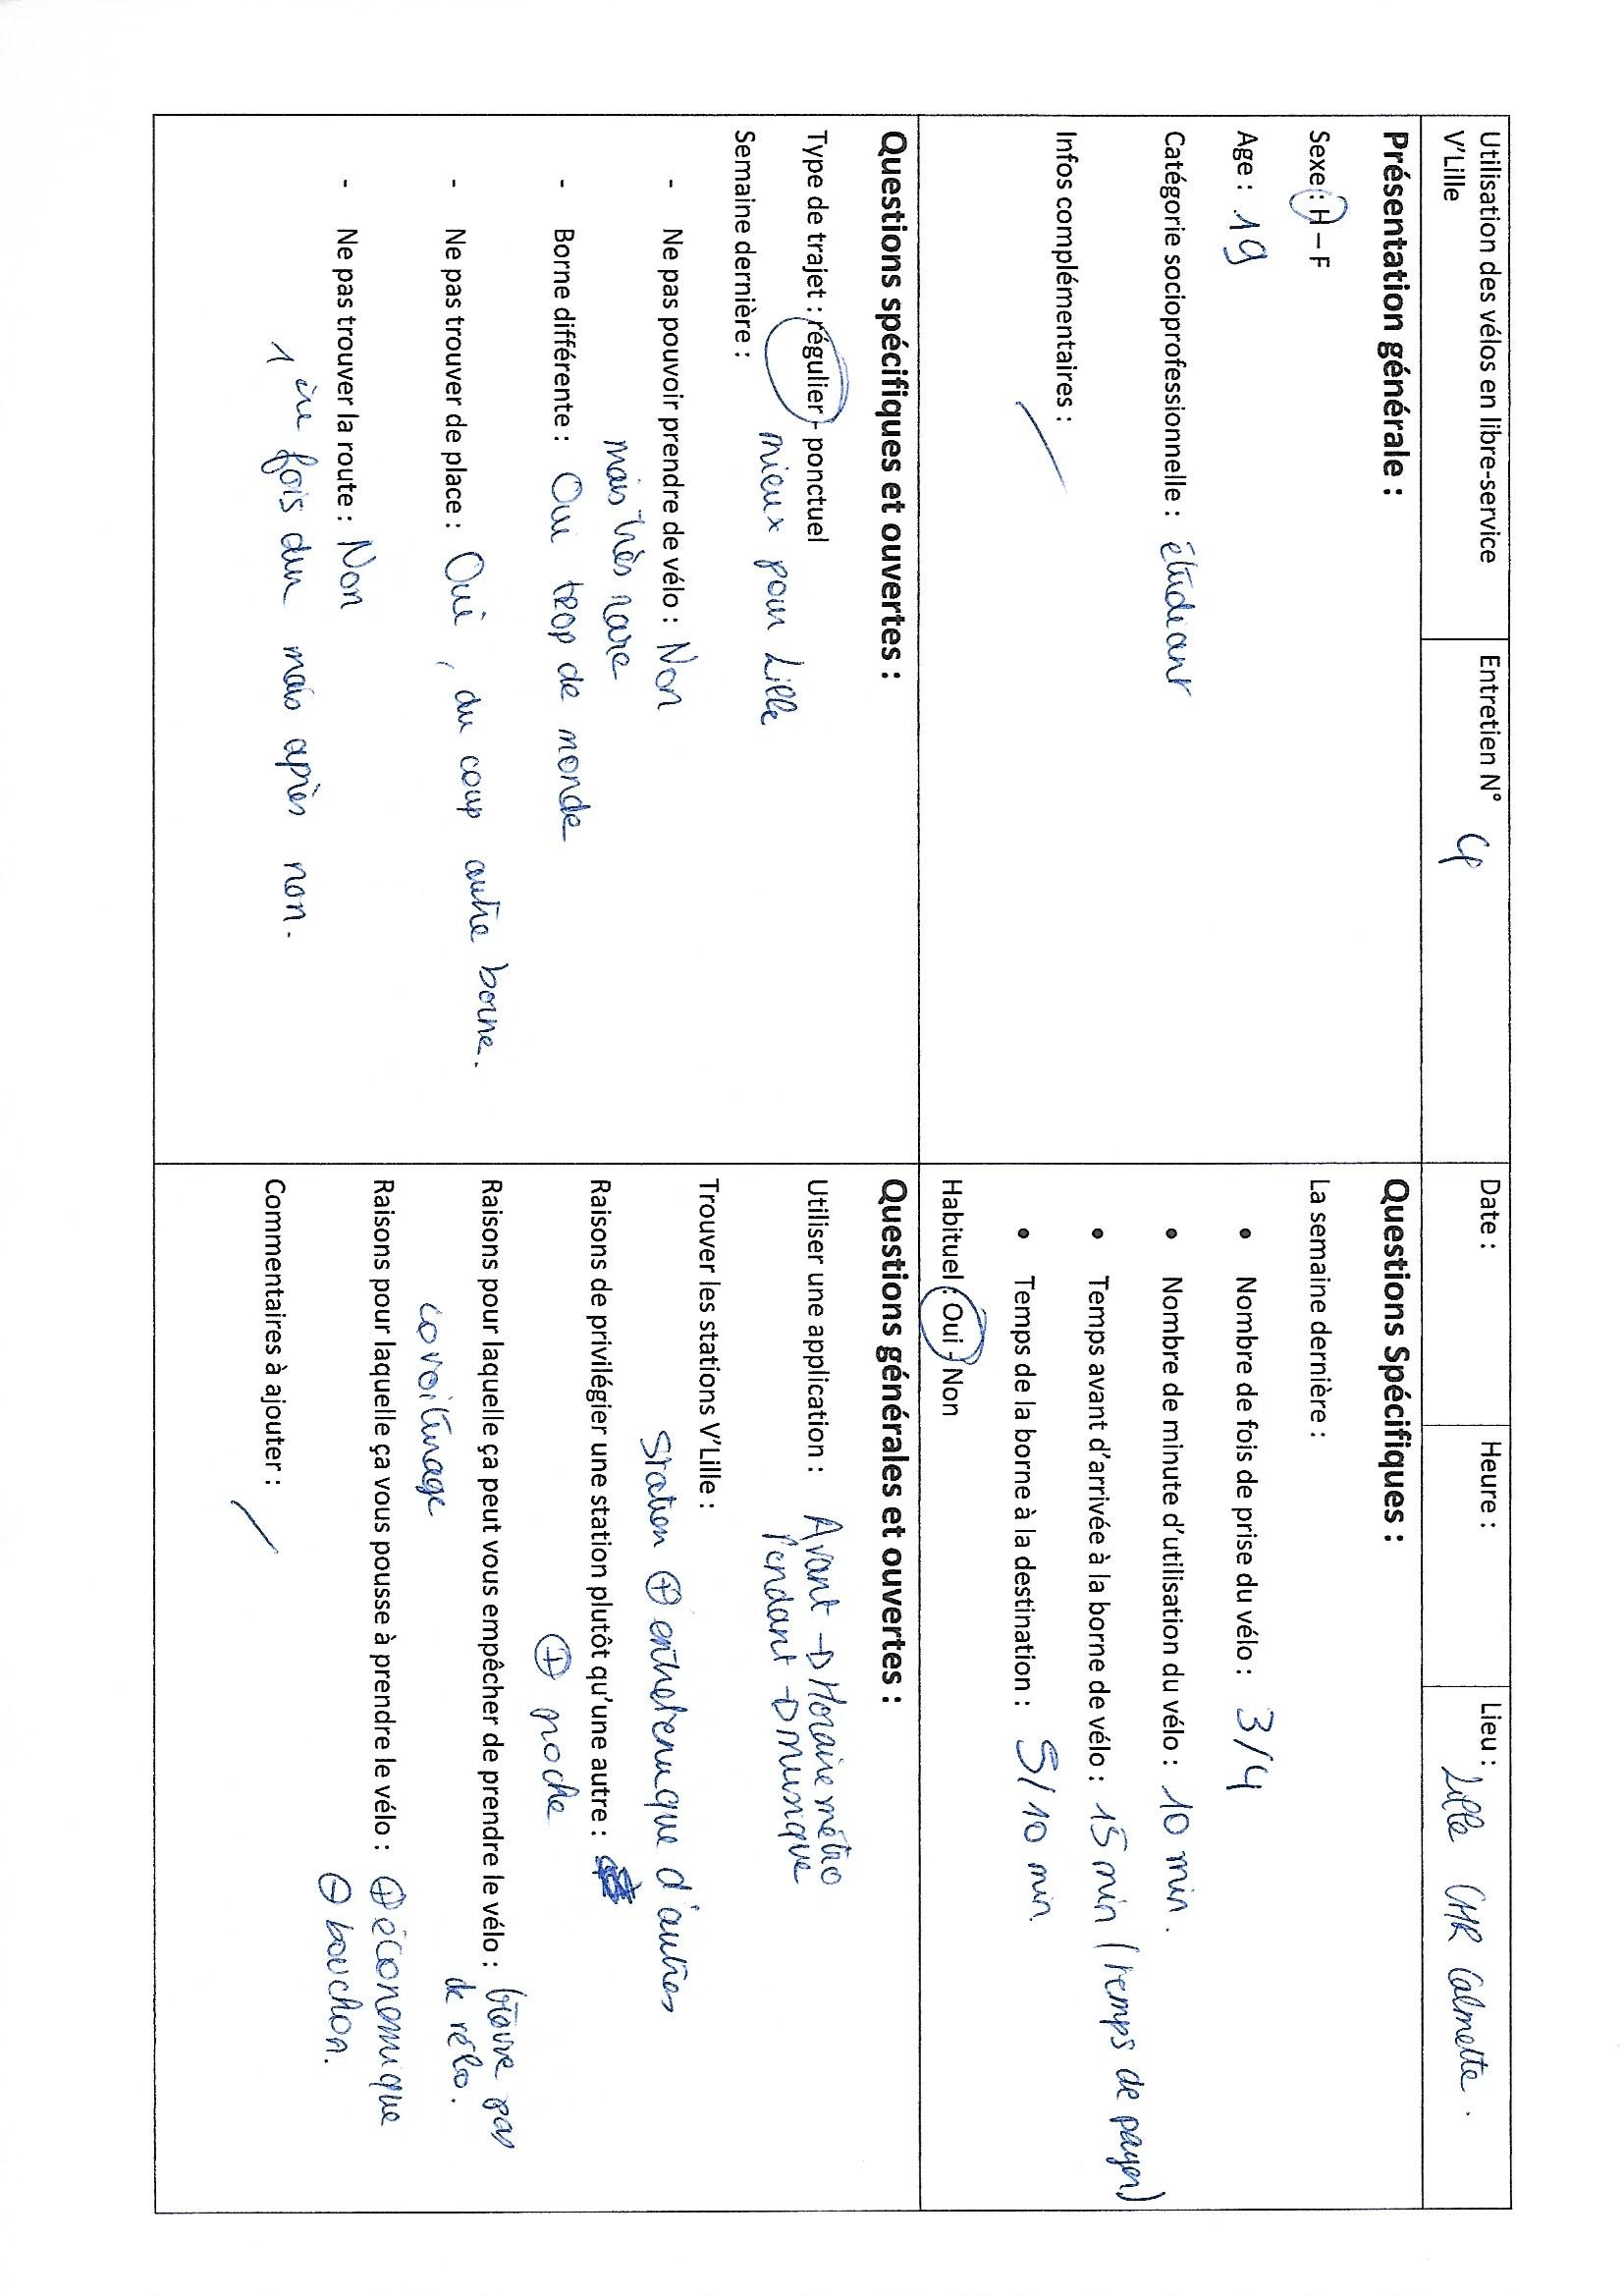 Utilisation des vélos en libre-service
V'Lille
Entretien N° 4
Date :
Heure :
Lieu : Lille CHR Calmette.
Présentation générale :
Sexe : H – F
Age : 19
Catégorie socioprofessionnelle : étudiant
Infos complémentaires : /
Questions Spécifiques :
La semaine dernière :
• Nombre de fois de prise du vélo : 3/4
• Nombre de minute d'utilisation du vélo : 10 min.
• Temps avant d'arrivée à la borne de vélo : 15 min (temps de payer)
• Temps de la borne à la destination : 5/10 min.
Habituel : Oui - Non
Questions spécifiques et ouvertes :
Type de trajet : régulier - ponctuel
mieux pour Lille
Semaine dernière :
- Ne pas pouvoir prendre de vélo : Non
mais très rare
- Borne différente : Oui trop de monde
- Ne pas trouver de place : Oui, du coup autre borne.
- Ne pas trouver la route : Non
1ère fois dur mais après non.
Questions générales et ouvertes :
Utiliser une application : Avant → Horaire métro
Pendant → Musique
Trouver les stations V'Lille :
Station ⊕ entretenu que d'autres
Raisons de privilégier une station plutôt qu'une autre :
⊕ proche
Raisons pour laquelle ça peut vous empêcher de prendre le vélo : trouve pas
de vélo.
covoiturage
Raisons pour laquelle ça vous pousse à prendre le vélo : ⊕ économique
⊖ bouchon.
Commentaires à ajouter : /